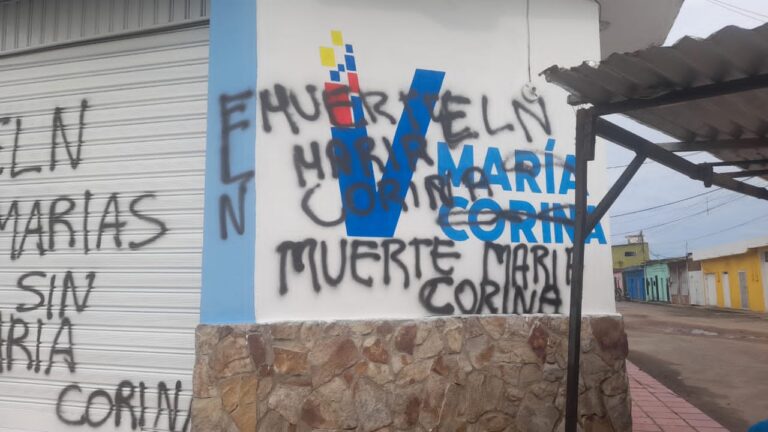 ELN
MARIAS
SIN
MARIA
CORINA
ELN
MUERTE ELN
MARIA
CORINA
MUERTE MARIA
CORINA
V
MARÍA
CORINA